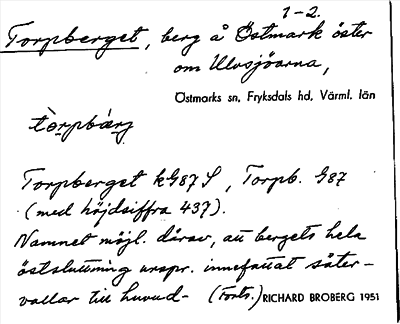 1-2.
Torpberget, berg å Östmark öster
om Ulvsjöarna,
Östmarks sn, Fryksdals hd, Värml. län
Torpberget kG87 S, Torpb. G87
(med höjdsiffra 437).
Namnet möjl. därav, att bergets hela
östsluttning urspr. innefattat säter-
vallar till huvud- (Forts.) RICHARD BROBERG 1951